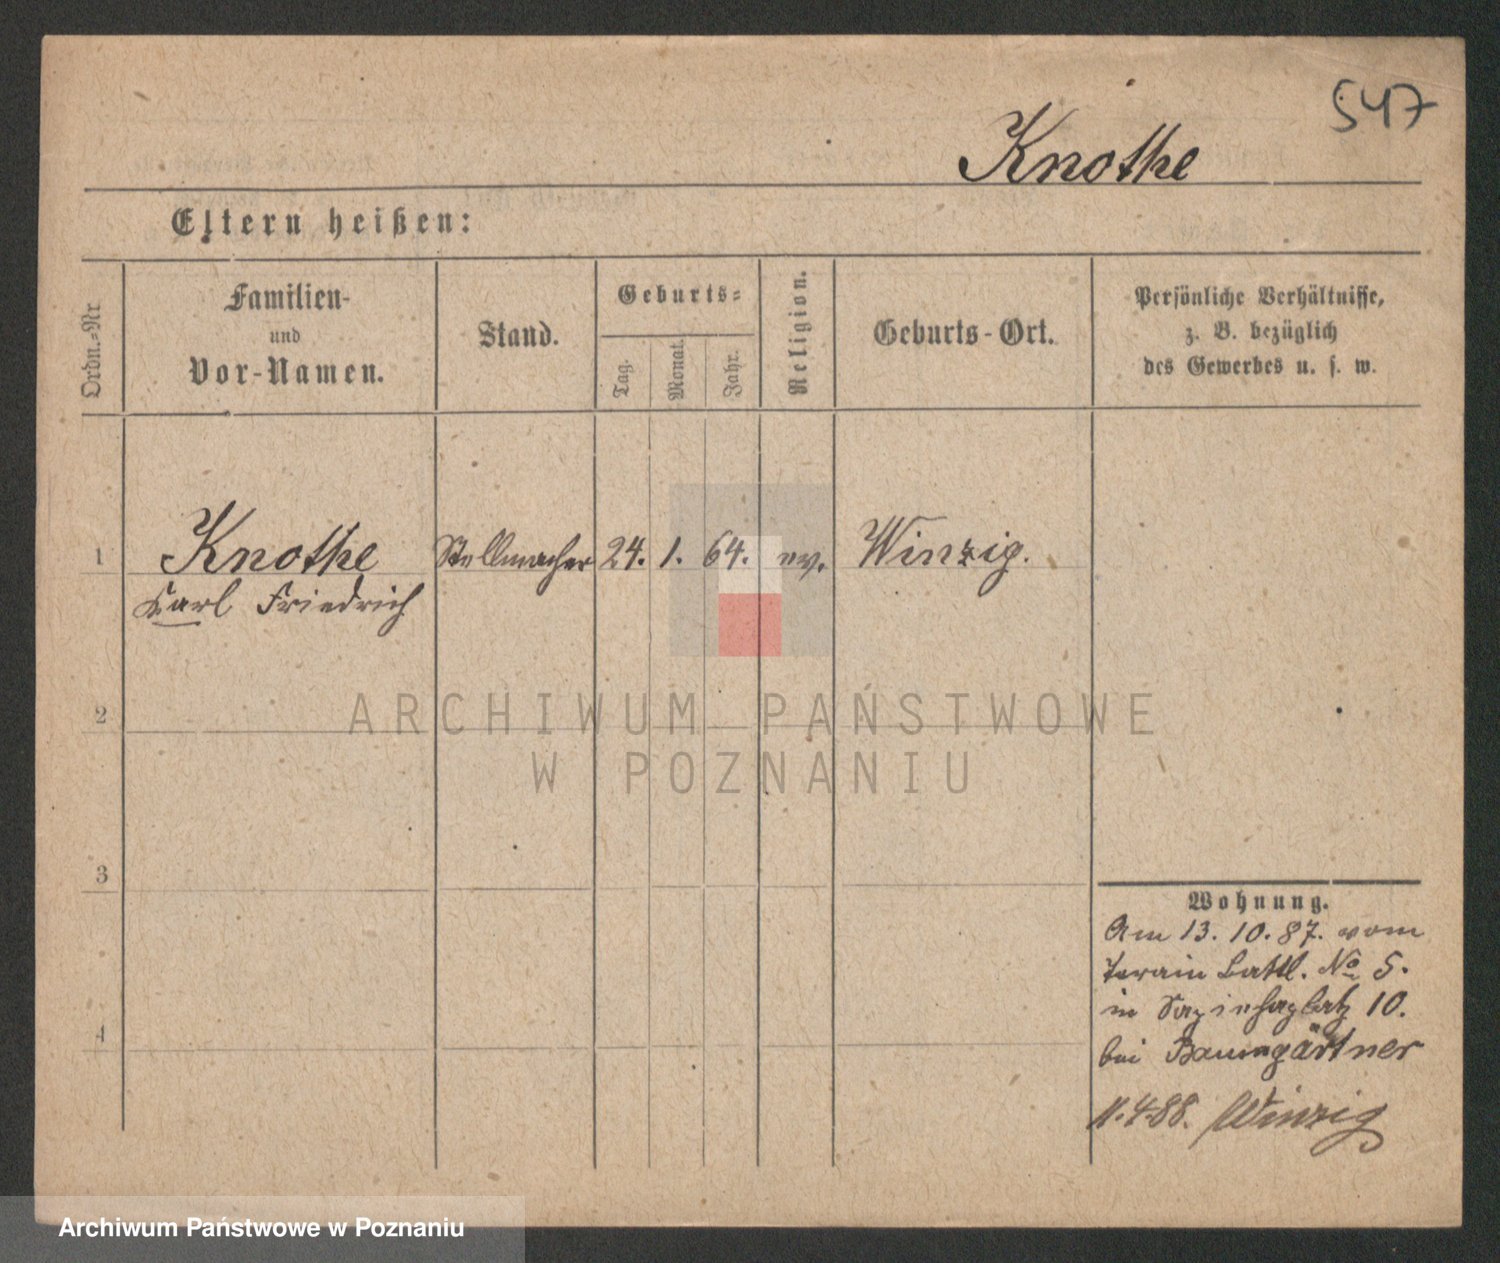 547
Knothe
Eltern heißen:
Ordn.-Nr
Familien-
und
Vor-Namen.
Stand.
Geburts-
Tag.
Monat.
Jahr.
Religion.
Geburts-Ort.
Persönliche Verhältnisse,
z. B. bezüglich
des Gewerbes u. s. w.
1 Knothe Stellmacher 24. 1. 64. ev. Winzig.
Carl Friedrich
2
ARCHIWUM PAŃSTWOWE
W POZNANIU
3
Wohnung.
Am 13. 10. 87. vom
Train Battl. No 5.
in 10.
4
bei Baumgärtner
11.4.88. Winzig
Archiwum Państwowe w Poznaniu